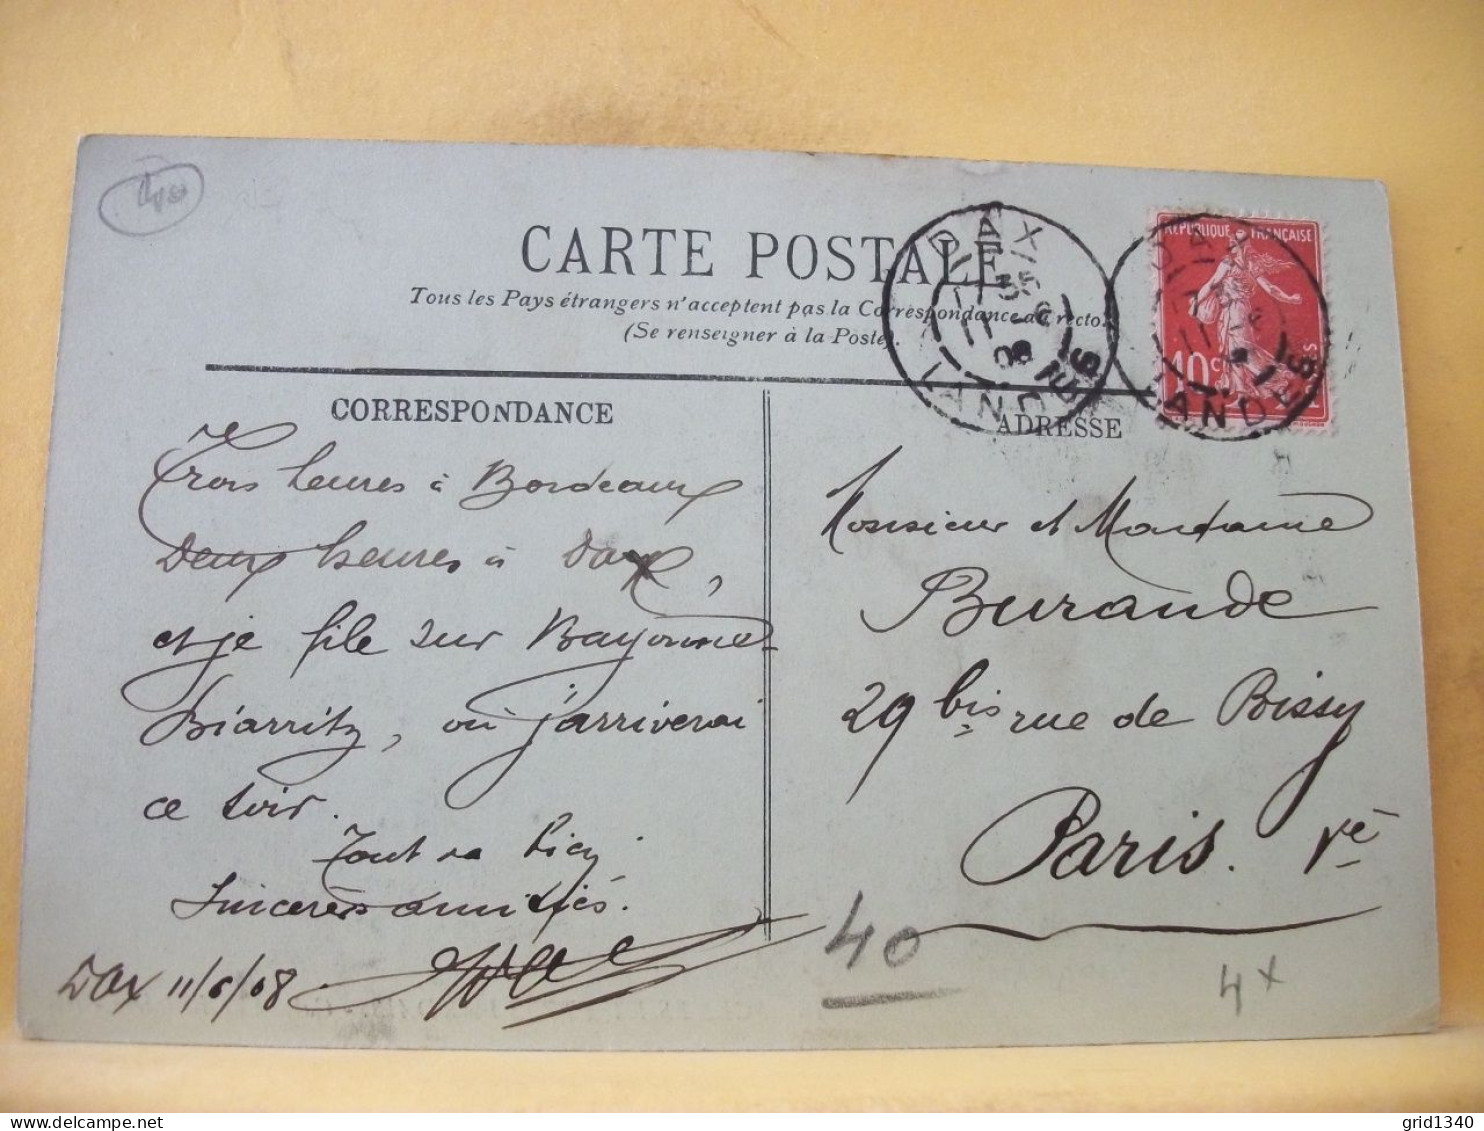 CARTE POSTALE
Tous les Pays étrangers n'acceptent pas la Correspondance au recto.
(Se renseigner à la Poste).
CORRESPONDANCE
ADRESSE
Trois heures à Bordeaux
Deux heures à Dax,
et je file sur Bayonne-
Biarritz, où j'arriverai
ce soir.
Tout va bien.
Sincères amitiés.
Dax 11/6/08.
Monsieur et Madame
Burande
29 bis rue de Bissy
Paris. Ve
40
4x
REPUBLIQUE FRANÇAISE
10 c
DAX
LANDES
DAX
LANDES
grid1340